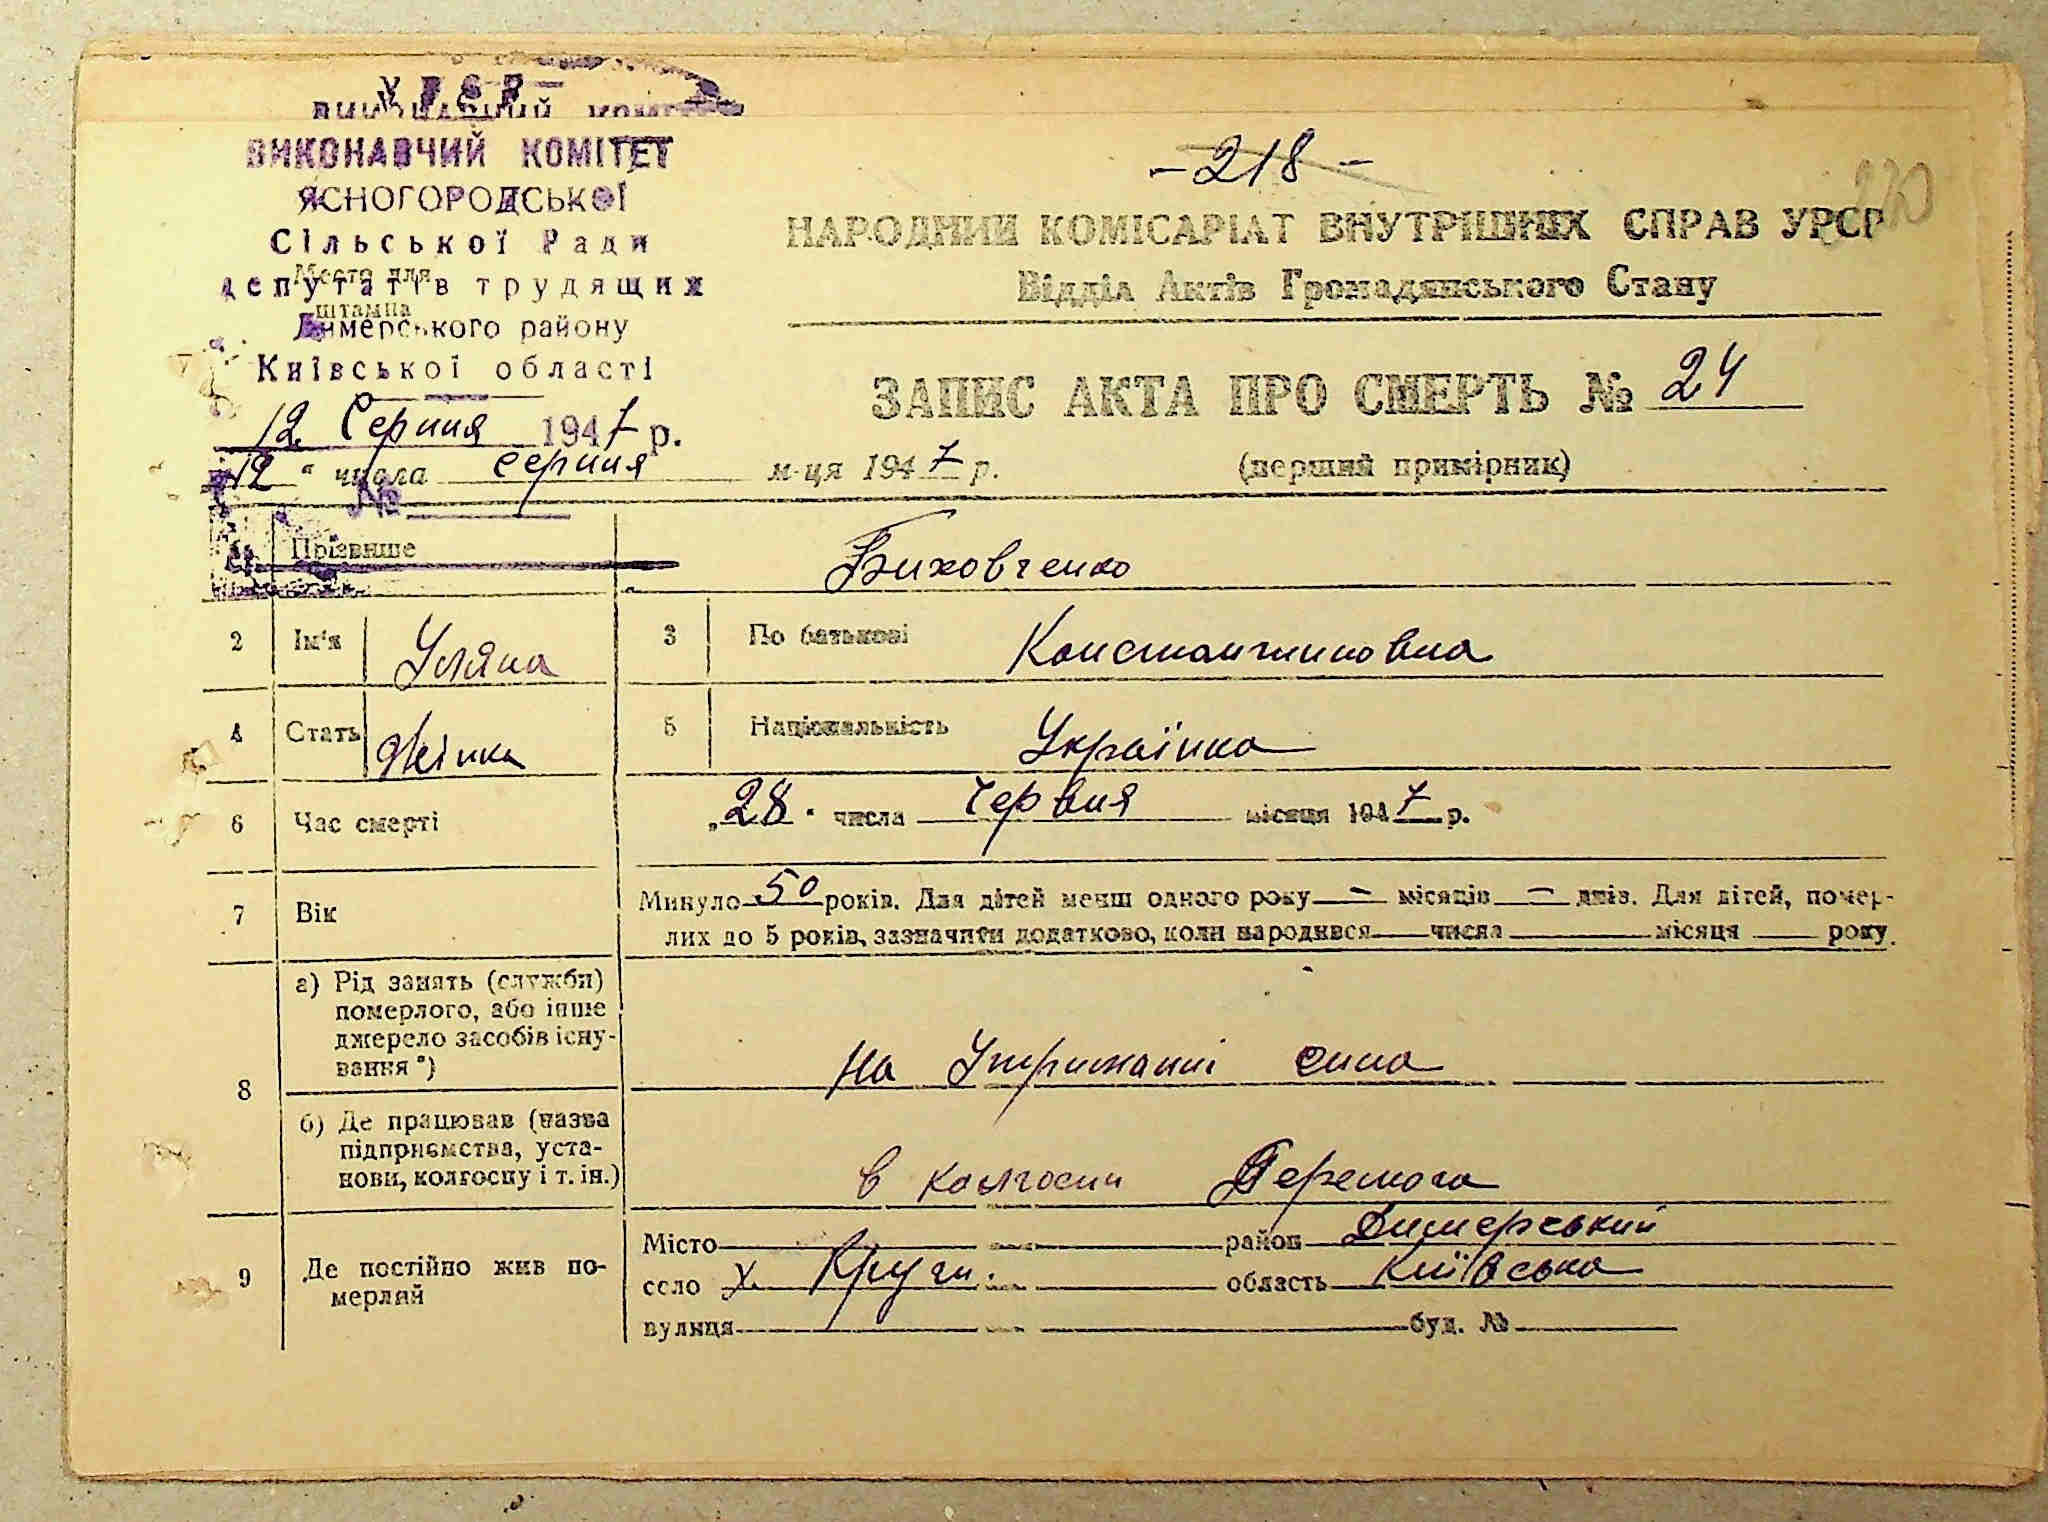 УРСР
ВИКОНАВЧИЙ КОМІТЕТ
ВИКОНАВЧИЙ КОМІТЕТ
ЯСНОГОРОДСЬКОЇ
Сільської Ради
депутатів трудящих
Место для
штампа
Димерського району
Київської області
12 Серпня 1947 р.
№
- 218 -
270
НАРОДНИЙ КОМІСАРІАТ ВНУТРІШНІХ СПРАВ УРСР
Відділ Актів Громадянського Стану
ЗАПИС АКТА ПРО СМЕРТЬ № 24
"12" числа серпня м-ця 1947 р. (перший примірник)
Прізвище Биховченко
2 Ім'я Уляна 3 По батькові Константиновна
4 Стать Жінка 5 Національність Українка
6 Час смерті „28" числа Червня місяця 1947 р.
7 Вік Минуло 50 років. Для дітей менш одного року — місяців — днів. Для дітей, помер-
лих до 5 років, зазначити додатково, коли народився числа місяця року
8 а) Рід занять (служби)
померлого, або інше
джерело засобів існу-
вання *)
На Утриманні сина
б) Де працював (назва
підприємства, уста-
нови, колгоспу і т. ін.)
в колгоспи Перемога
9 Де постійно жив по-
мерлий
Місто район Димерський
село х. Круги. область Київська
вулиця буд. №